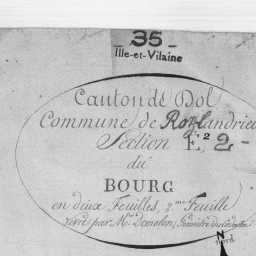 35
Ille-et-Vilaine
Canton de Dol
Commune de Rozlandrieu
Section E² 2
du
BOURG
en deux Feuilles, 2me Feuille
Levé par Mr
Nord